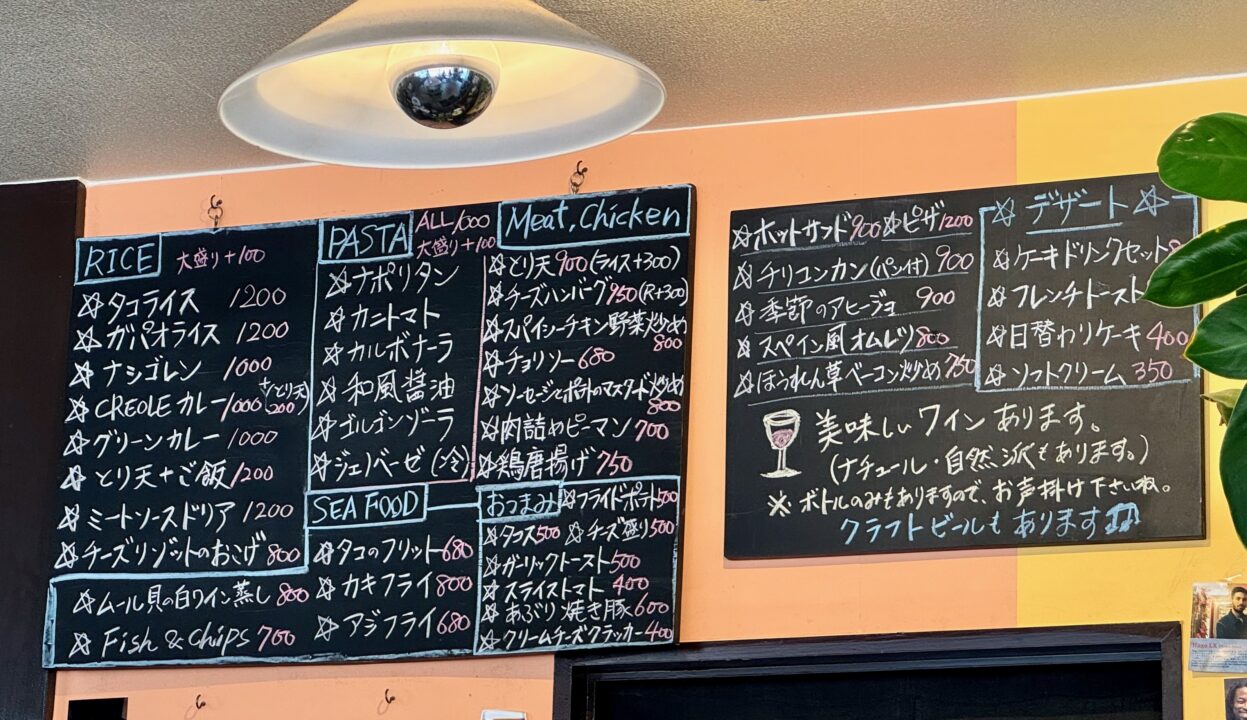 RICE 大盛り+100
☆タコライス 1200
☆ガパオライス 1200
☆ナシゴレン 1000
☆CREOLEカレー1000(+とり天200)
☆グリーンカレー 1000
☆とり天+ご飯1200
☆ミートソースドリア 1200
☆チーズリゾットのおこげ 800
PASTA ALL1000
大盛り+100
☆ナポリタン
☆カニトマト
☆カルボナーラ
☆和風醤油
☆ゴルゴンゾーラ
☆ジェノベーゼ(冷)
Meat,Chicken
☆とり天900(ライス+300)
☆チーズハンバーグ950(R+300)
☆スパイシーチキン野菜炒め
800
☆チョリソー680
☆ソーセージとポテトのマスタード炒め
800
☆肉詰めピーマン 700
☆鶏唐揚げ 750
SEA FOOD
☆タコのフリット680
☆カキフライ800
☆アジフライ680
☆ムール貝の白ワイン蒸し 800
☆Fish & chips 700
おつまみ ☆フライドポテト500
☆タコス500 ☆チーズ盛り500
☆ガーリックトースト500
☆スライストマト 400
☆あぶり焼き豚600
☆クリームチーズクラッカー400
☆ホットサンド900 ☆ピザ1200
☆チリコンカン(パン付)900
☆季節のアヒージョ 900
☆スペイン風オムレツ800
☆ほうれん草ベーコン炒め750
☆デザート☆
☆ケーキドリンクセット
☆フレンチトースト
☆日替わりケーキ 400
☆ソフトクリーム 350
美味しいワインあります。
(ナチュール・自然派もあります。)
※ボトルのみもありますので、お声掛け下さいね。
クラフトビールもあります